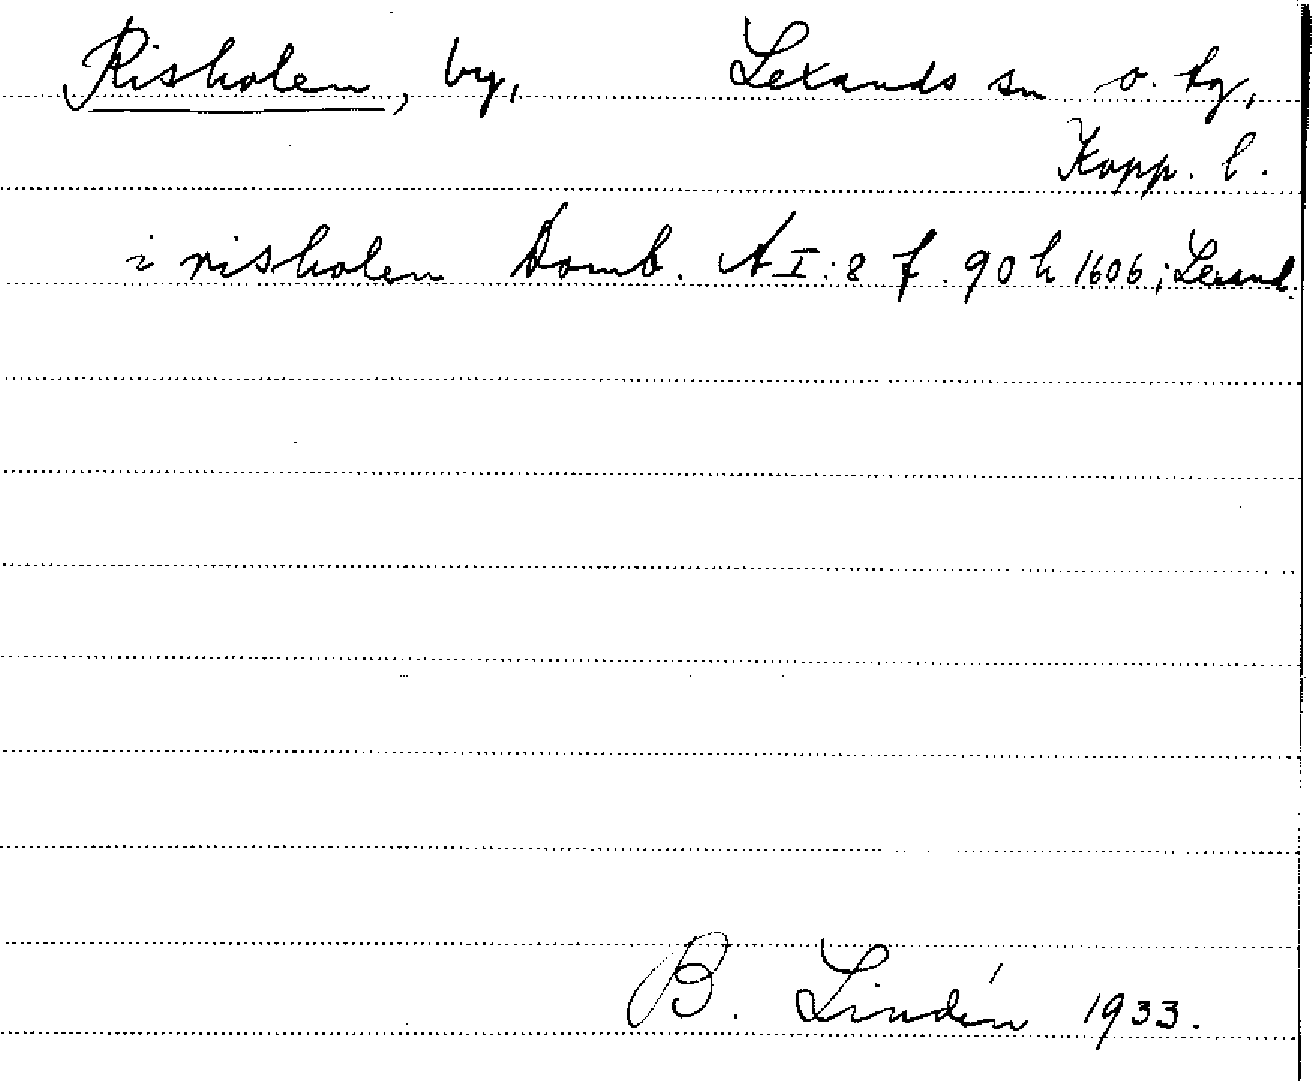 Risholen, by, Lexands sn o. hg,
Kopp. l.
i risholen Domb. A I:8 f. 90 h 1606; Lexand.
B. Lindén 1933.